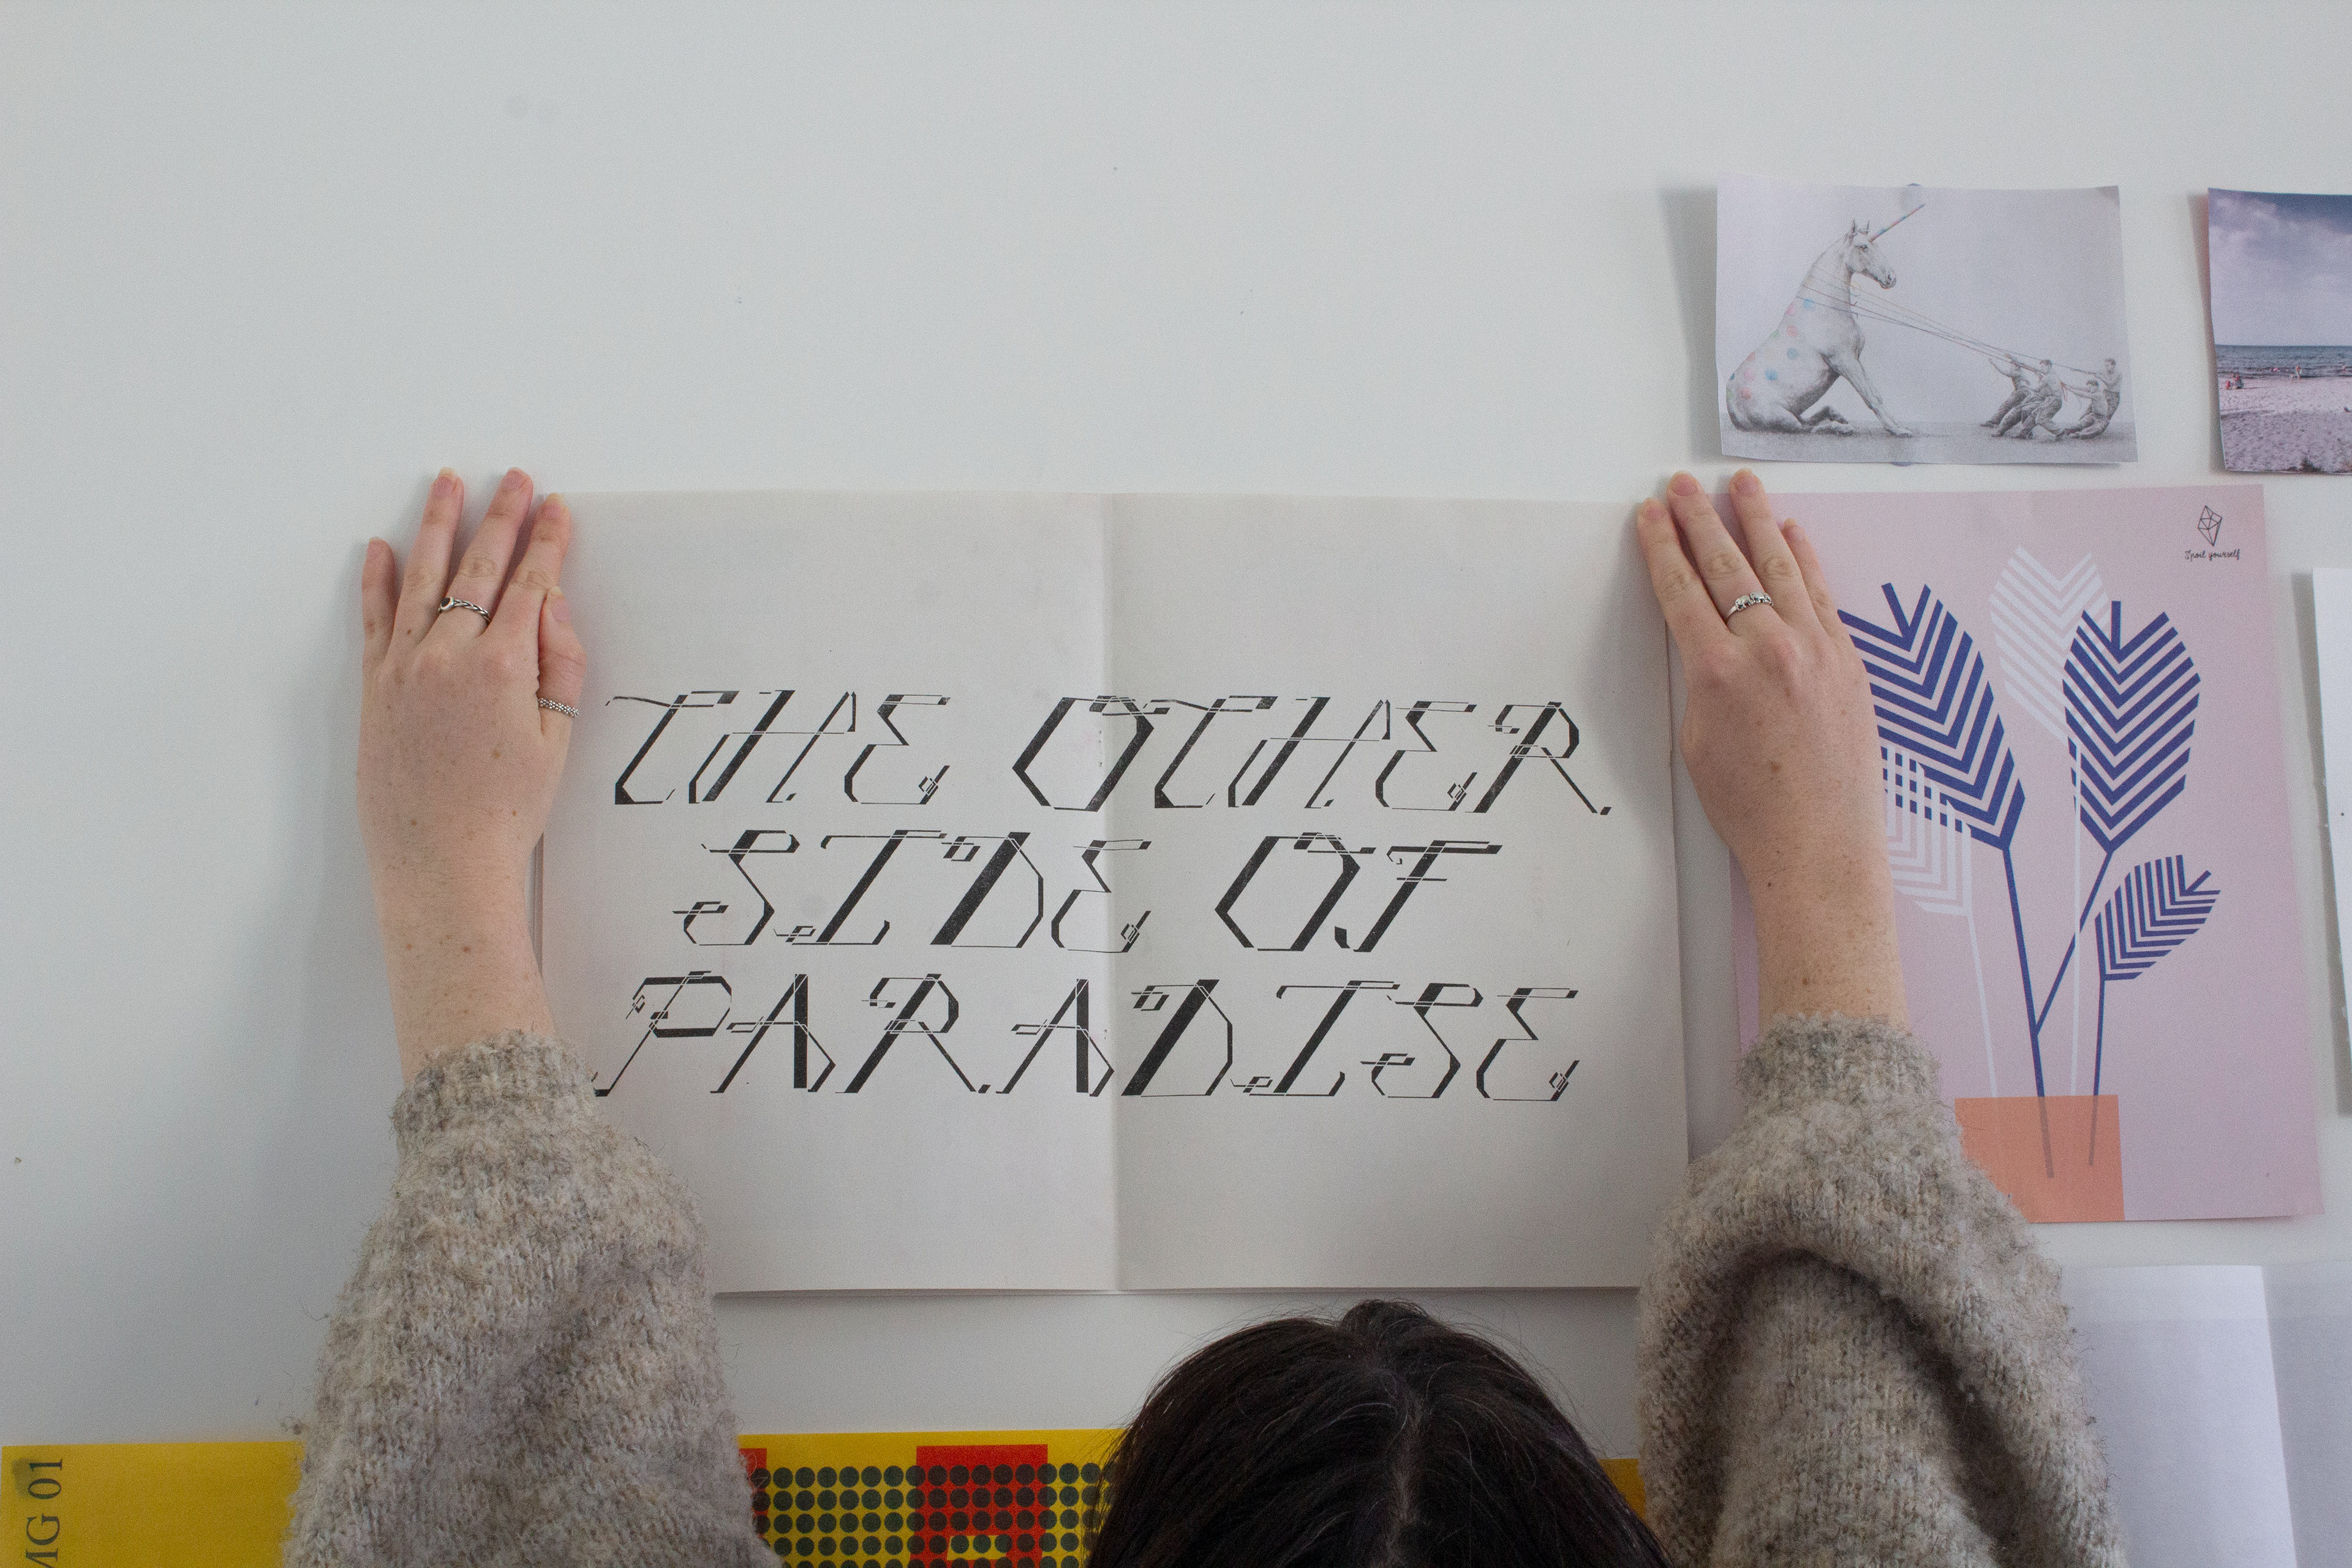 THE OTHER
SIDE OF
PARADISE
Spoil yourself
MG 01